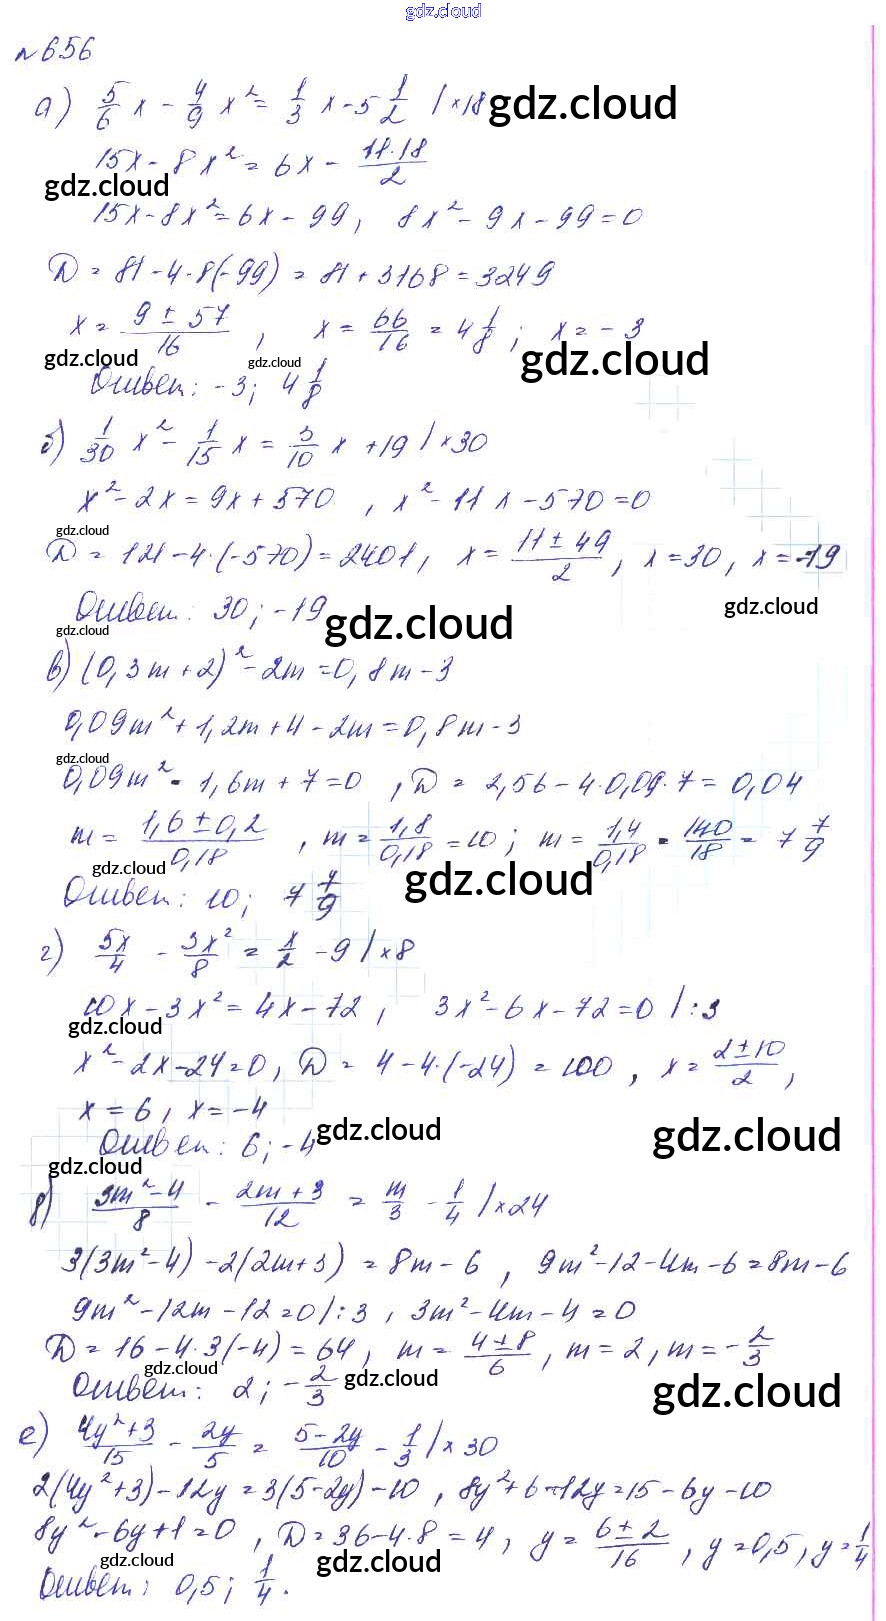 gdz.cloud
№656
а) 5/6 x - 4/9 x² = 1/3 x - 5 1/2 | ×18 gdz.cloud
15x - 8x² = 6x - 11·18/2
gdz.cloud
15x - 8x² = 6x - 99, 8x² - 9x - 99 = 0
D = 81 - 4·8(-99) = 81 + 3168 = 3249
x = (9 ± 57)/16, x = 66/16 = 4 1/8; x = -3
gdz.cloud gdz.cloud gdz.cloud
Ответ: -3; 4 1/8
б) 1/30 x² - 1/15 x = 3/10 x + 19 | ×30
x² - 2x = 9x + 570, x² - 11x - 570 = 0
gdz.cloud
D = 121 - 4·(-570) = 2401, x = (11 ± 49)/2, x = 30, x = -19
Ответ: 30; -19 gdz.cloud gdz.cloud
gdz.cloud
в) (0,3m + 2)² - 2m = 0,8m - 3
0,09m² + 1,2m + 4 - 2m = 0,8m - 3
gdz.cloud
0,09m² - 1,6m + 7 = 0, D = 2,56 - 4·0,09·7 = 0,04
m = (1,6 ± 0,2)/0,18, m = 1,8/0,18 = 10; m = 1,4/0,18 = 140/18 = 7 7/9
gdz.cloud gdz.cloud
Ответ: 10; 7 7/9
г) 5x/4 - 3x²/8 = x/2 - 9 | ×8
10x - 3x² = 4x - 72, 3x² - 6x - 72 = 0 | :3
gdz.cloud
x² - 2x - 24 = 0, D = 4 - 4·(-24) = 100, x = (2 ± 10)/2,
x = 6, x = -4
Ответ: 6; -4 gdz.cloud gdz.cloud
gdz.cloud
д) (3m² - 4)/8 - (2m + 3)/12 = m/3 - 1/4 | ×24
3(3m² - 4) - 2(2m + 3) = 8m - 6, 9m² - 12 - 4m - 6 = 8m - 6
9m² - 12m - 12 = 0 | :3, 3m² - 4m - 4 = 0
D = 16 - 4·3(-4) = 64, m = (4 ± 8)/6, m = 2, m = -2/3
gdz.cloud gdz.cloud gdz.cloud
Ответ: 2; -2/3
е) (4y² + 3)/15 - 2y/5 = (5 - 2y)/10 - 1/3 | ×30
2(4y² + 3) - 12y = 3(5 - 2y) - 10, 8y² + 6 - 12y = 15 - 6y - 10
8y² - 6y + 1 = 0, D = 36 - 4·8 = 4, y = (6 ± 2)/16, y = 0,5, y = 1/4
gdz.cloud gdz.cloud gdz.cloud
Ответ: 0,5; 1/4.